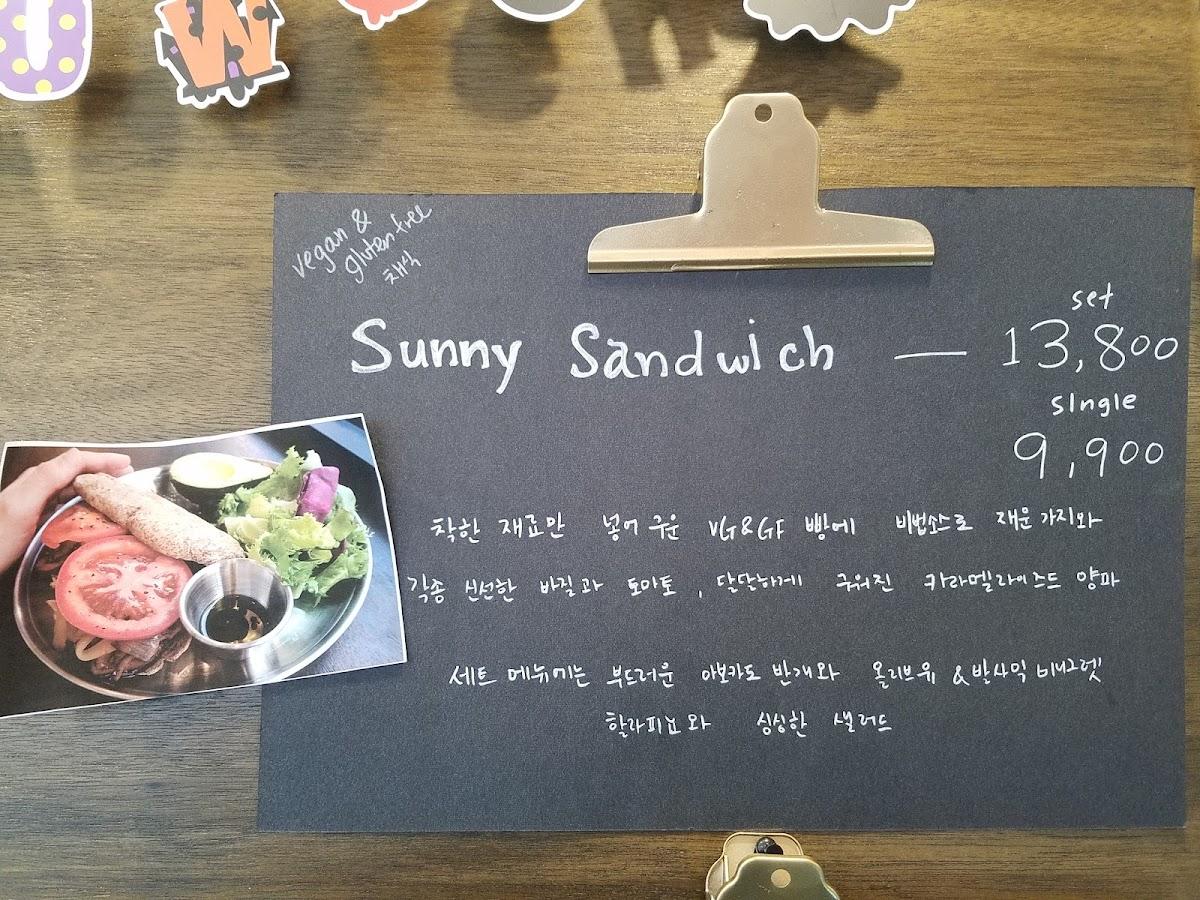 W
vegan &
gluten free
채식
set
Sunny Sandwich — 13,800
single
9,900
착한 재료만 넣어 구운 VG&GF 빵에 비법소스로 재운 가지와
각종 신선한 바질과 토마토, 달달하게 구워진 카라멜라이즈드 양파
세트 메뉴에는 부드러운 아보카도 반개와 올리브유 & 발사믹 비네그렛
할라피뇨와 싱싱한 샐러드